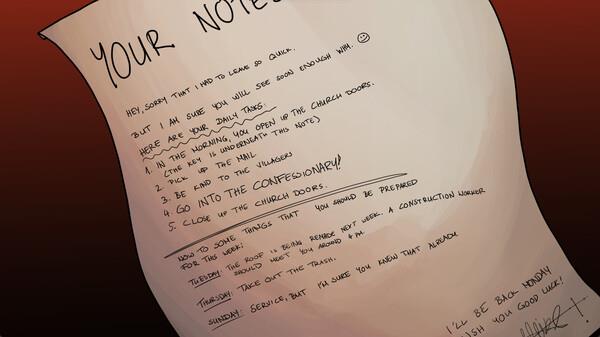 YOUR NOTES
HEY, SORRY THAT I HAD TO LEAVE SO QUICK.
BUT I AM SURE YOU WILL SEE SOON ENOUGH WHY.
HERE ARE YOUR DAILY TASKS:
1. IN THE MORNING, YOU OPEN UP THE CHURCH DOORS.
(THE KEY IS UNDERNEATH THIS NOTE)
2. PICK UP THE MAIL
3. BE KIND TO THE VILLAGERS
4. GO INTO THE CONFESSIONARY!
5. CLOSE UP THE CHURCH DOORS.
NOW TO SOME THINGS THAT YOU SHOULD BE PREPARED
FOR THIS WEEK:
TUESDAY: THE ROOF IS BEING REMADE NEXT WEEK. A CONSTRUCTION WORKER
SHOULD MEET YOU AROUND 4 PM.
THURSDAY: TAKE OUT THE TRASH.
SUNDAY: SERVICE, BUT I'M SURE YOU KNEW THAT ALREADY
I'LL BE BACK MONDAY
WISH YOU GOOD LUCK!